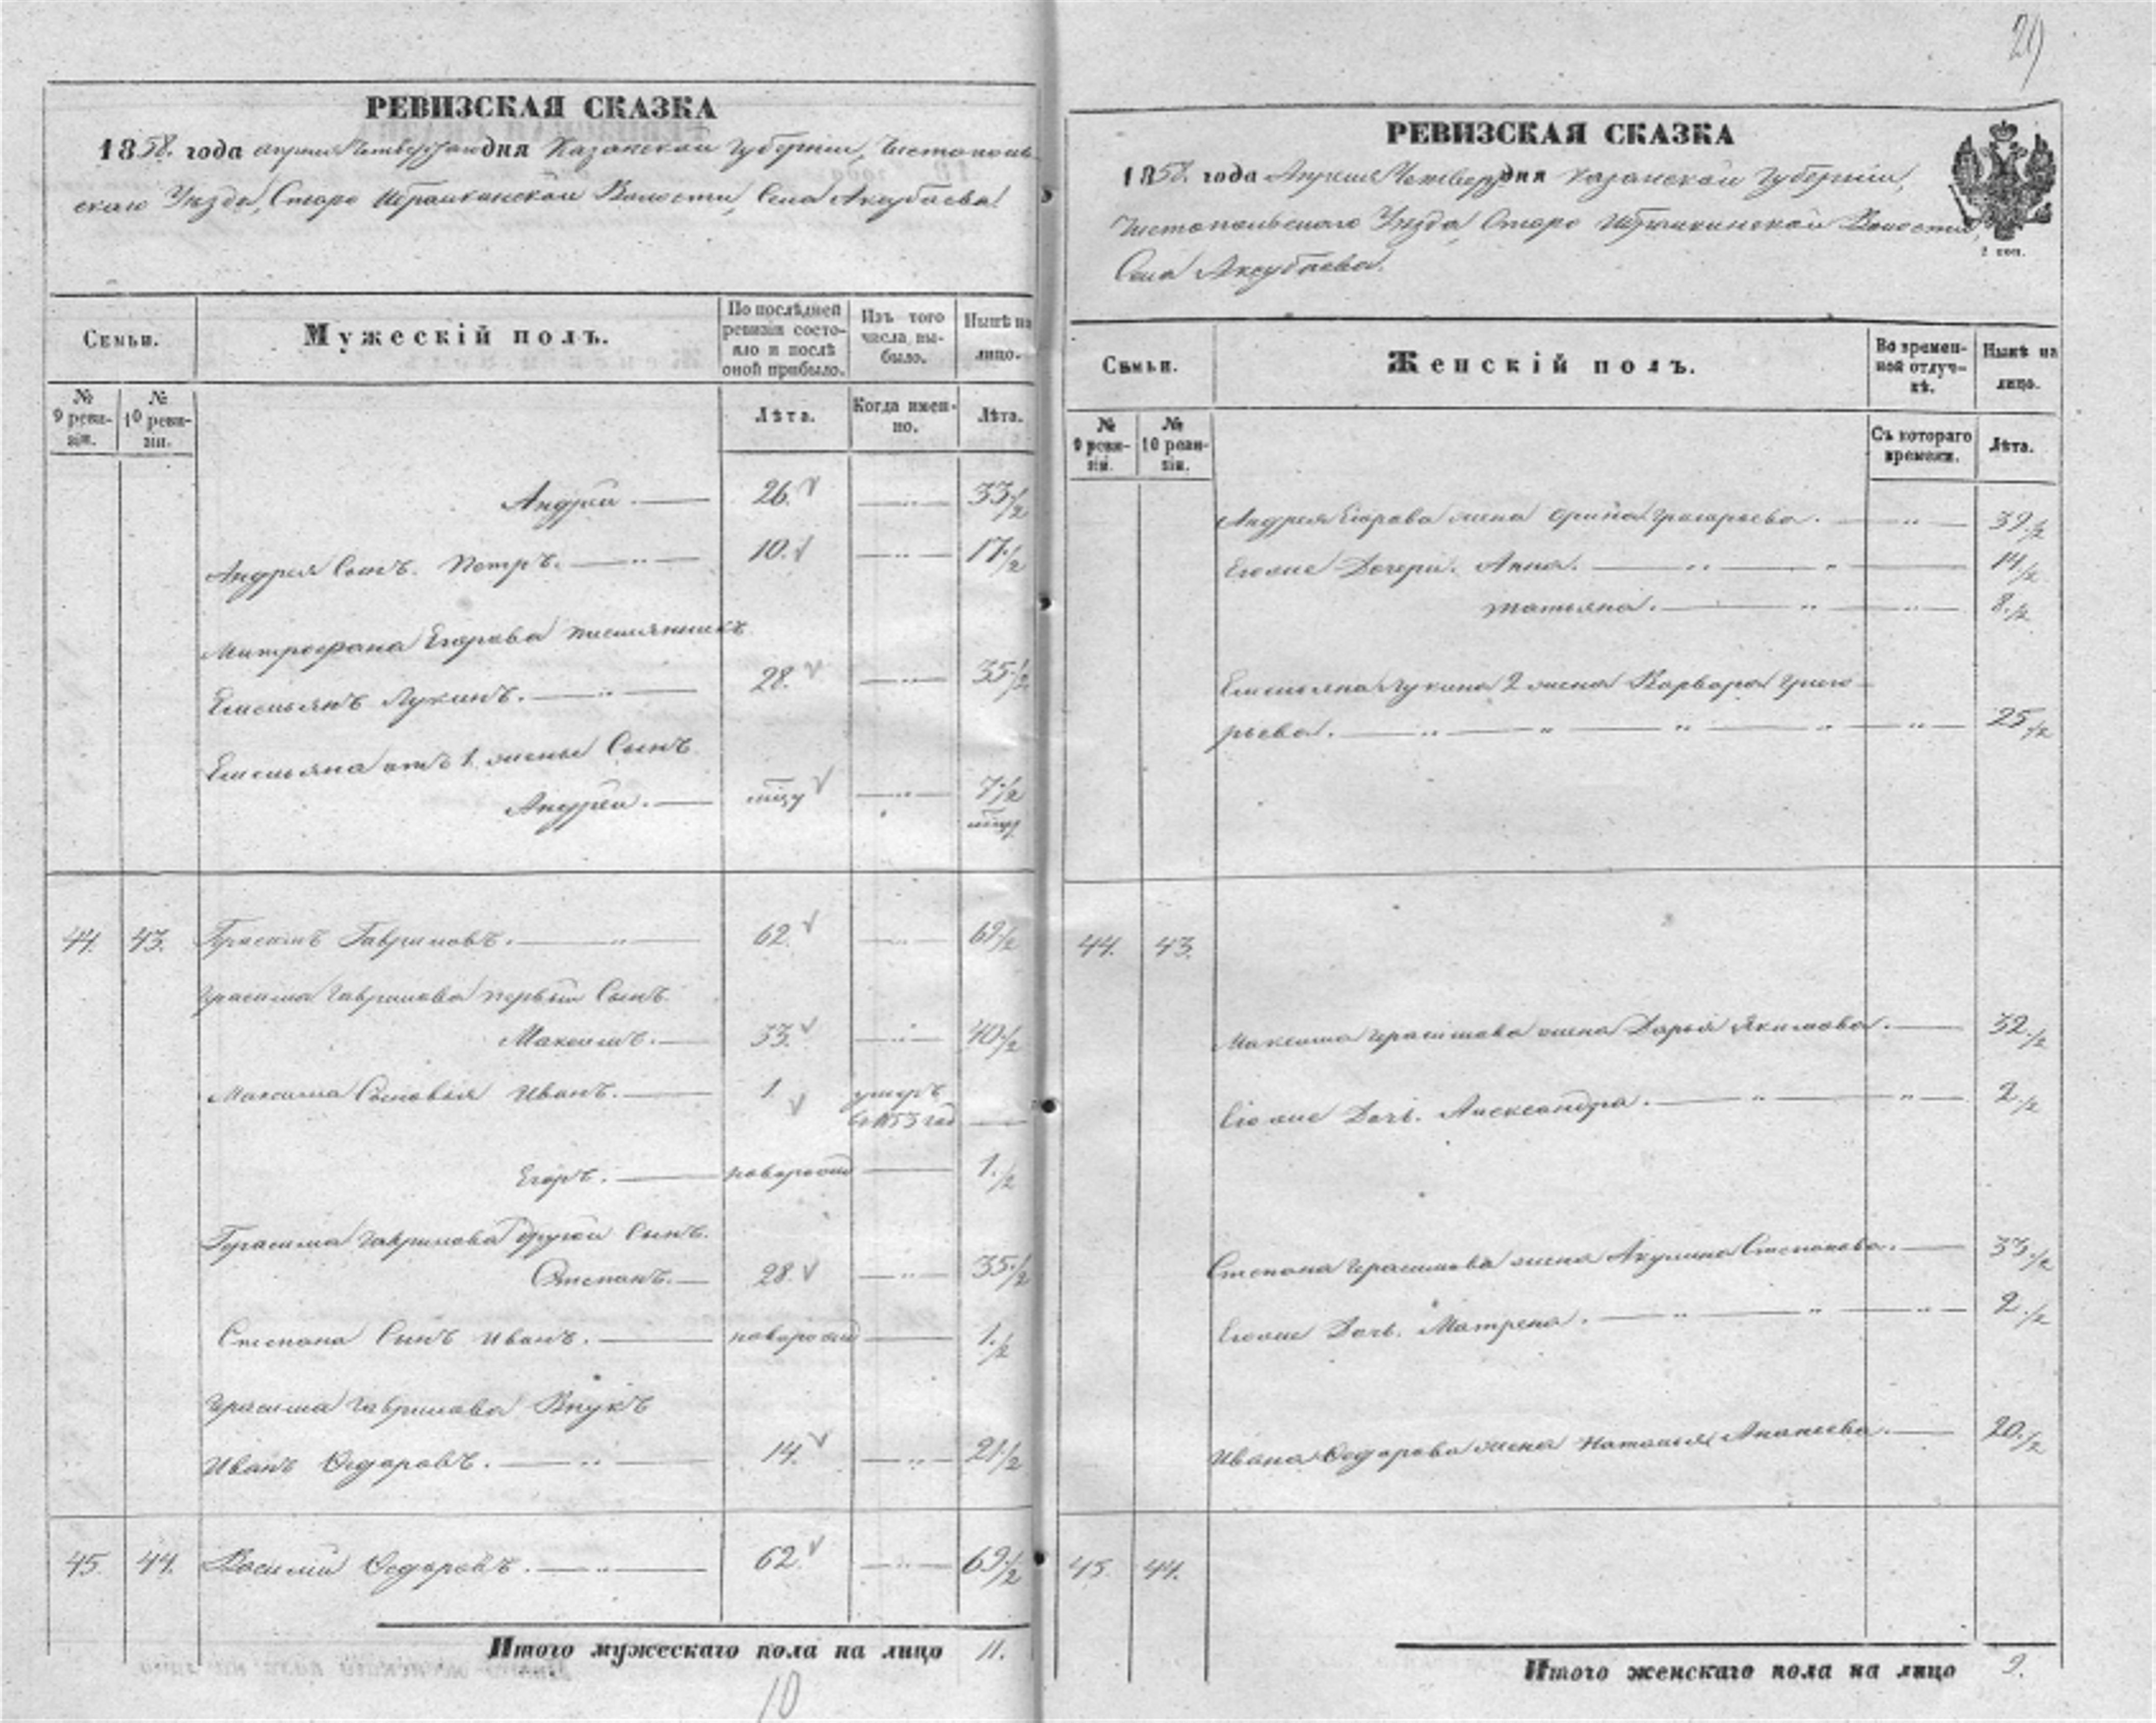 29
РЕВИЗСКАЯ СКАЗКА
1858. года апреля Четвертаго дня Казанской Губерніи, Чистополь-
скаго Уезда, Старо Ибрайкинской Волости, Села Аксубаева
Семьи.
Мужескій полъ.
По послѣдней ревизіи состояло и послѣ оной прибыло.
Изъ того числа выбыло.
Нынѣ на лицо.
№ 9 ревизіи.
№ 10 ревизіи.
Лѣта.
Когда именно.
Лѣта.
Андрей 26. 33 1/2
Андрея Сынъ. Петръ. 10. 17 1/2
Митрофана Егорова племянникъ
Емельянъ Лукинъ. 28. 35 1/2
Емельяна отъ 1 жены Сынъ
Андрей. 7 1/2
44. 43. Герасимъ Гавриловъ. 62. 69 1/2
Герасима Гаврилова первый Сынъ
Максимъ. 33. 40 1/2
Максима Сыновья Иванъ. 1. умеръ
въ 1853 год
Егоръ. новорожд 1. 1/2
Герасима Гаврилова другой Сынъ.
Степанъ. 28. 35 1/2
Степана Сынъ Иванъ. новорожд 1. 1/2
Герасима Гаврилова Внукъ
Иванъ Федоровъ. 14. 21 1/2
45. 44. Василий Федоровъ. 62. 69 1/2
Итого мужескаго пола на лицо 11.
10
РЕВИЗСКАЯ СКАЗКА
1858. года Апреля Четвер дня Казанской Губерніи,
Чистопольскаго Уезда, Старо Ибрайкинской Волости,
Села Аксубаева.
2 коп.
Семьи.
Женскій полъ.
Во временной отлучкѣ.
Нынѣ на лицо.
№ 9 ревизіи.
№ 10 ревизіи.
Съ котораго времени.
Лѣта.
Андрея Егорова жена Орина Григорьева. 39. 1/2
Егоже Дочери. Анна. 14. 1/2
Татьяна. 8. 1/2
Емельяна Лукина 2 жена Варвара Григо-
рьева. 25. 1/2
44. 43.
Максима Герасимова жена Дарья Якимова. 32. 1/2
Егоже Дочь. Александра. 2. 1/2
Степана Герасимова жена Акулина Степанова. 33. 1/2
Егоже Дочь. Матрена. 2. 1/2
Ивана Федорова жена Наталья Ананьева. 20. 1/2
45. 44.
Итого женскаго пола на лицо 9.